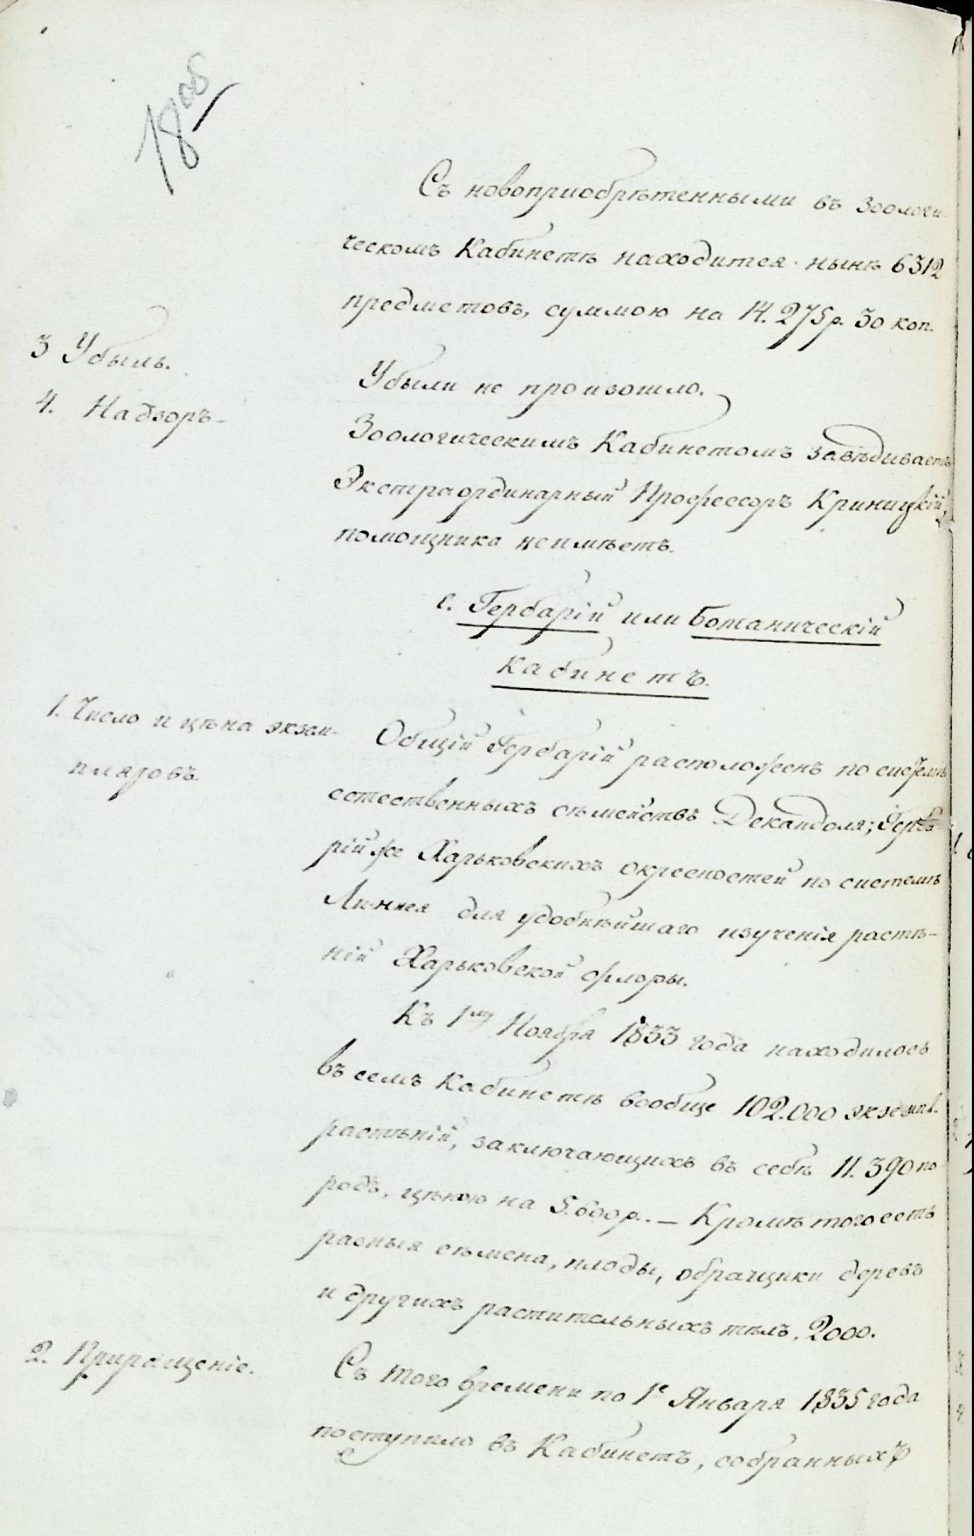 1808
Съ новопріобрѣтенными въ Зоологи-
ческомъ Кабинетѣ находится нынѣ 6312
предметовъ, суммою на 14.275 р. 30 коп.
3 Убыль.
Убыли не произошло.
4. Надзоръ-
Зоологическимъ Кабинетомъ завѣдиваетъ
Экстраординарный Профессоръ Криницкій,
помощника неимѣетъ.
с. Гербарій или Ботаническій
Кабинетъ.
1. Число и цѣна экзем-
пляровъ.
Общій Гербарій расположенъ по системѣ
естественныхъ сѣмействъ Декандоля; Герба-
рій же Харьковскихъ окресностей по системѣ
Линнея для удобнѣйшаго изученія растѣ-
ній Харьковской флоры.
Къ 1му Ноября 1833 года находилось
въ семъ Кабинетѣ вообще 102.000 экземпл.
растѣній, заключающихъ въ себѣ 11.390 по
родъ, цѣною на 5.600 р.. — Кромѣ того есть
разныя сѣмена, плоды, образщики деревъ
и другихъ растительныхъ тѣлъ. 2000.
2. Приращеніе.
Съ того времени по 1е Января 1835 года
поступило въ Кабинетъ, собранныхъ